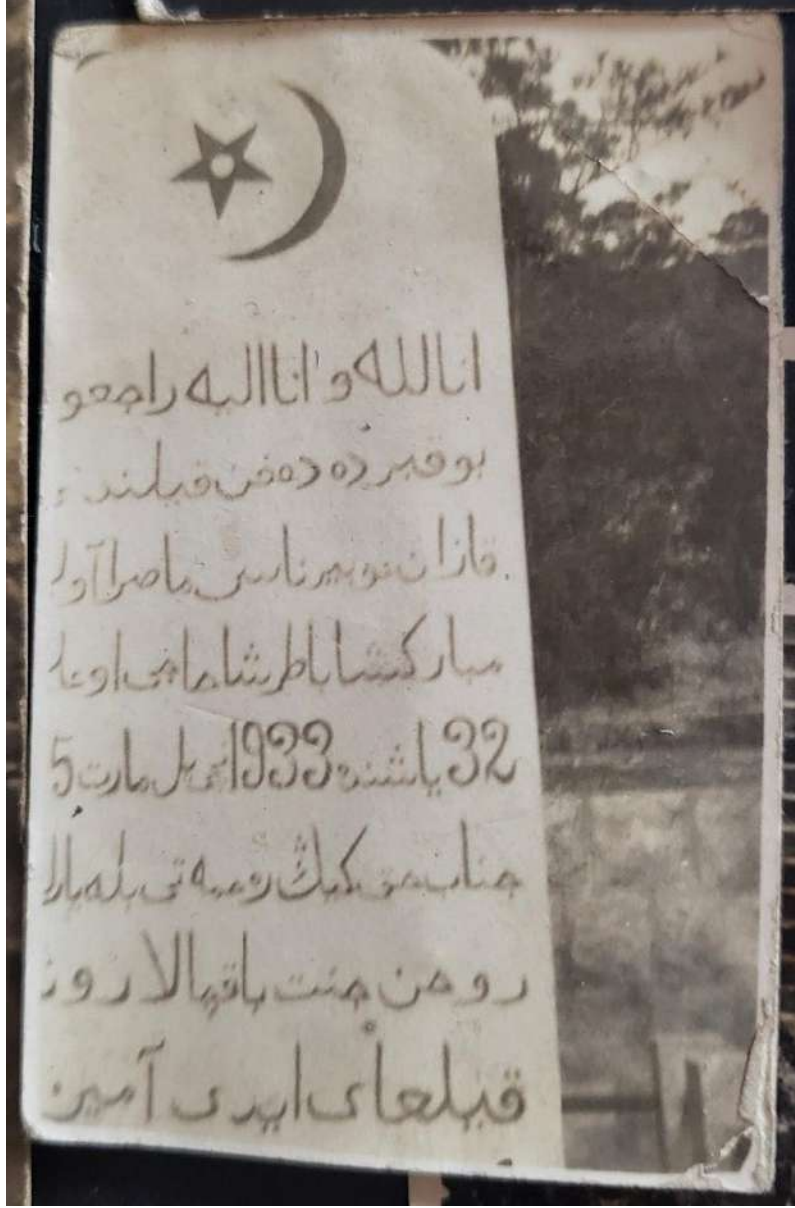 انا لله و انا اليه راجعو
بو قبر ده ده فن قيلند
قازان نوبيرناسى ماصرا آول
مباركشا باطرشا
32 ياشنده 1933 نچى يل مارت 5
جناب حق نيڭ رحمه تى بله يارل
روحن جنت باقچالارون
قيلغاى ايدى آمين